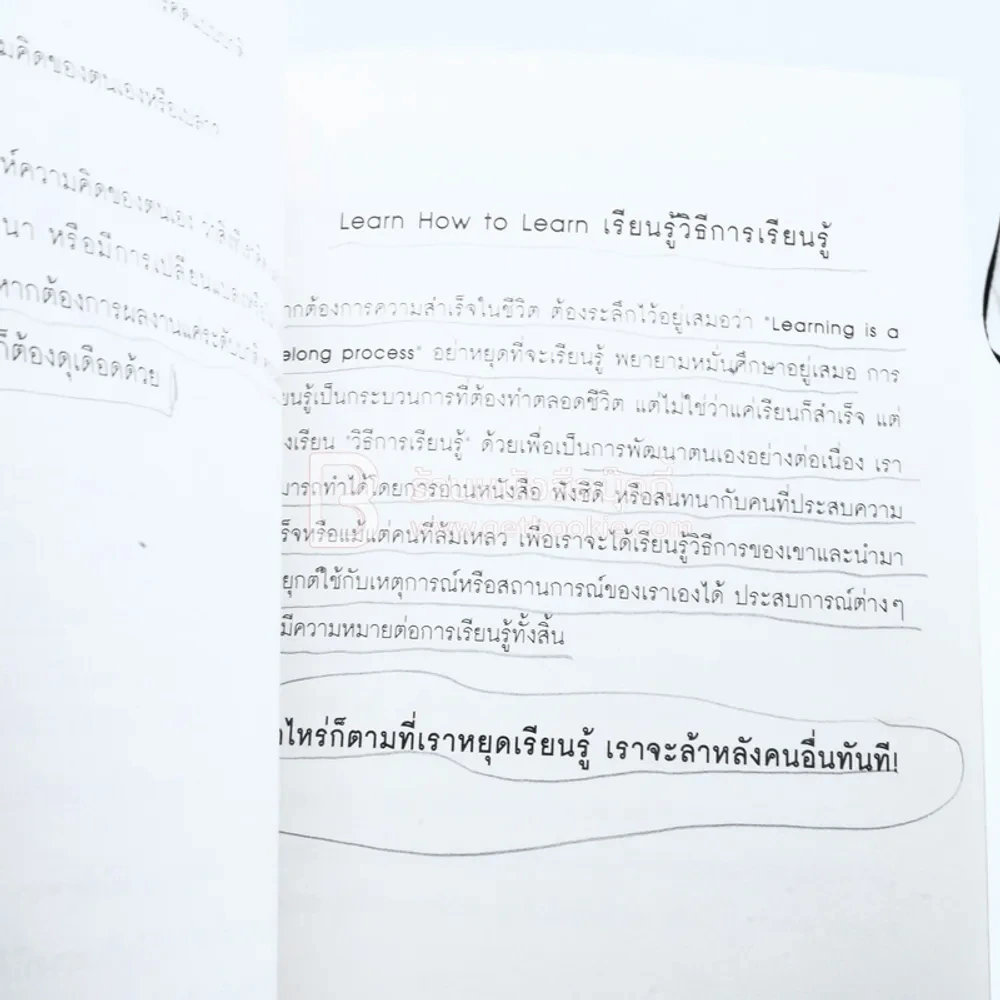 มคิดของตนเองหรือเปล่า
ห์ความคิดของตนเอง
นา หรือมีการเปลี่ยนแปลงหรือไม่
หากต้องการผลงานแค่ระดับปกติ
ก็ต้องดุเดือดด้วย
Learn How to Learn เรียนรู้วิธีการเรียนรู้
ากต้องการความสำเร็จในชีวิต ต้องระลึกไว้อยู่เสมอว่า "Learning is a
elong process" อย่าหยุดที่จะเรียนรู้ พยายามหมั่นศึกษาอยู่เสมอ การ
ยนรู้เป็นกระบวนการที่ต้องทำตลอดชีวิต แต่ไม่ใช่ว่าแค่เรียนก็สำเร็จ แต่
งเรียน "วิธีการเรียนรู้" ด้วยเพื่อเป็นการพัฒนาตนเองอย่างต่อเนื่อง เรา
มารถทำได้โดยการอ่านหนังสือ ฟังซีดี หรือสนทนากับคนที่ประสบความ
ร็จหรือแม้แต่คนที่ล้มเหลว เพื่อเราจะได้เรียนรู้วิธีการของเขาและนำมา
ยุกต์ใช้กับเหตุการณ์หรือสถานการณ์ของเราเองได้ ประสบการณ์ต่างๆ
มีความหมายต่อการเรียนรู้ทั้งสิ้น
าไหร่ก็ตามที่เราหยุดเรียนรู้ เราจะล้าหลังคนอื่นทันที!
B ร้านหนังสือบุ๊กกี้
www.getbookie.com